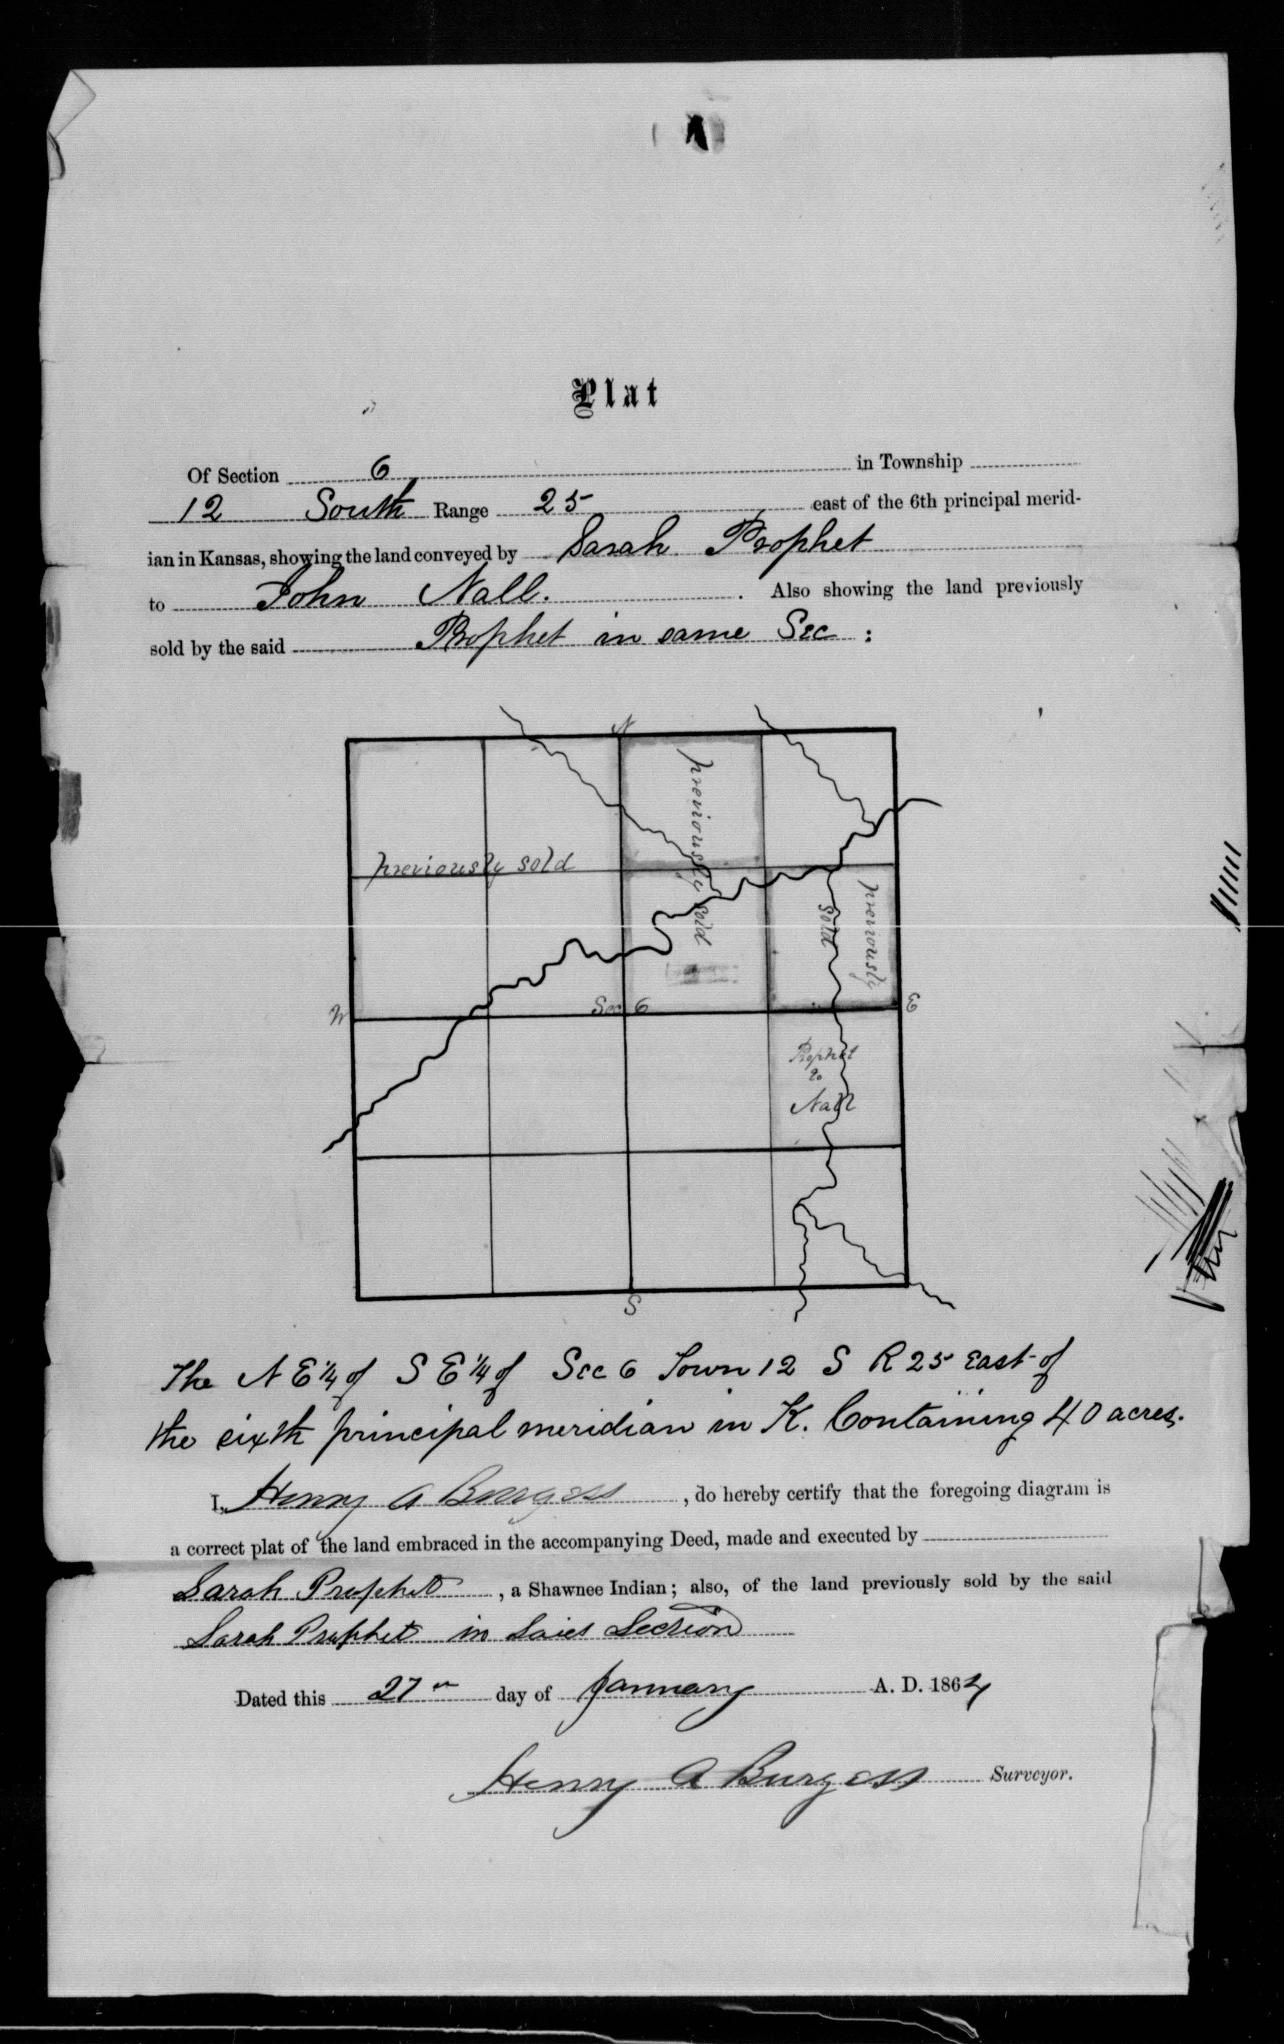 Plat
Of Section 6 in Township
12 South Range 25 east of the 6th principal merid-
ian in Kansas, showing the land conveyed by Sarah Prophet
to John Nall. . Also showing the land previously
sold by the said Prophet in same Sec :
N
previously sold
previously sold
previously
sold
W
Sec 6
E
Prophet
to
Nall
S
The N E 1/4 of S E 1/4 of Sec 6 Town 12 S R 25 East of
the sixth principal meridian in K. Containing 40 acres.
I, Henry A Burgess , do hereby certify that the foregoing diagram is
a correct plat of the land embraced in the accompanying Deed, made and executed by
Sarah Prophet , a Shawnee Indian; also, of the land previously sold by the said
Sarah Prophet in Said Section
Dated this 27th day of January A. D. 1864
Henry A Burgess Surveyor.